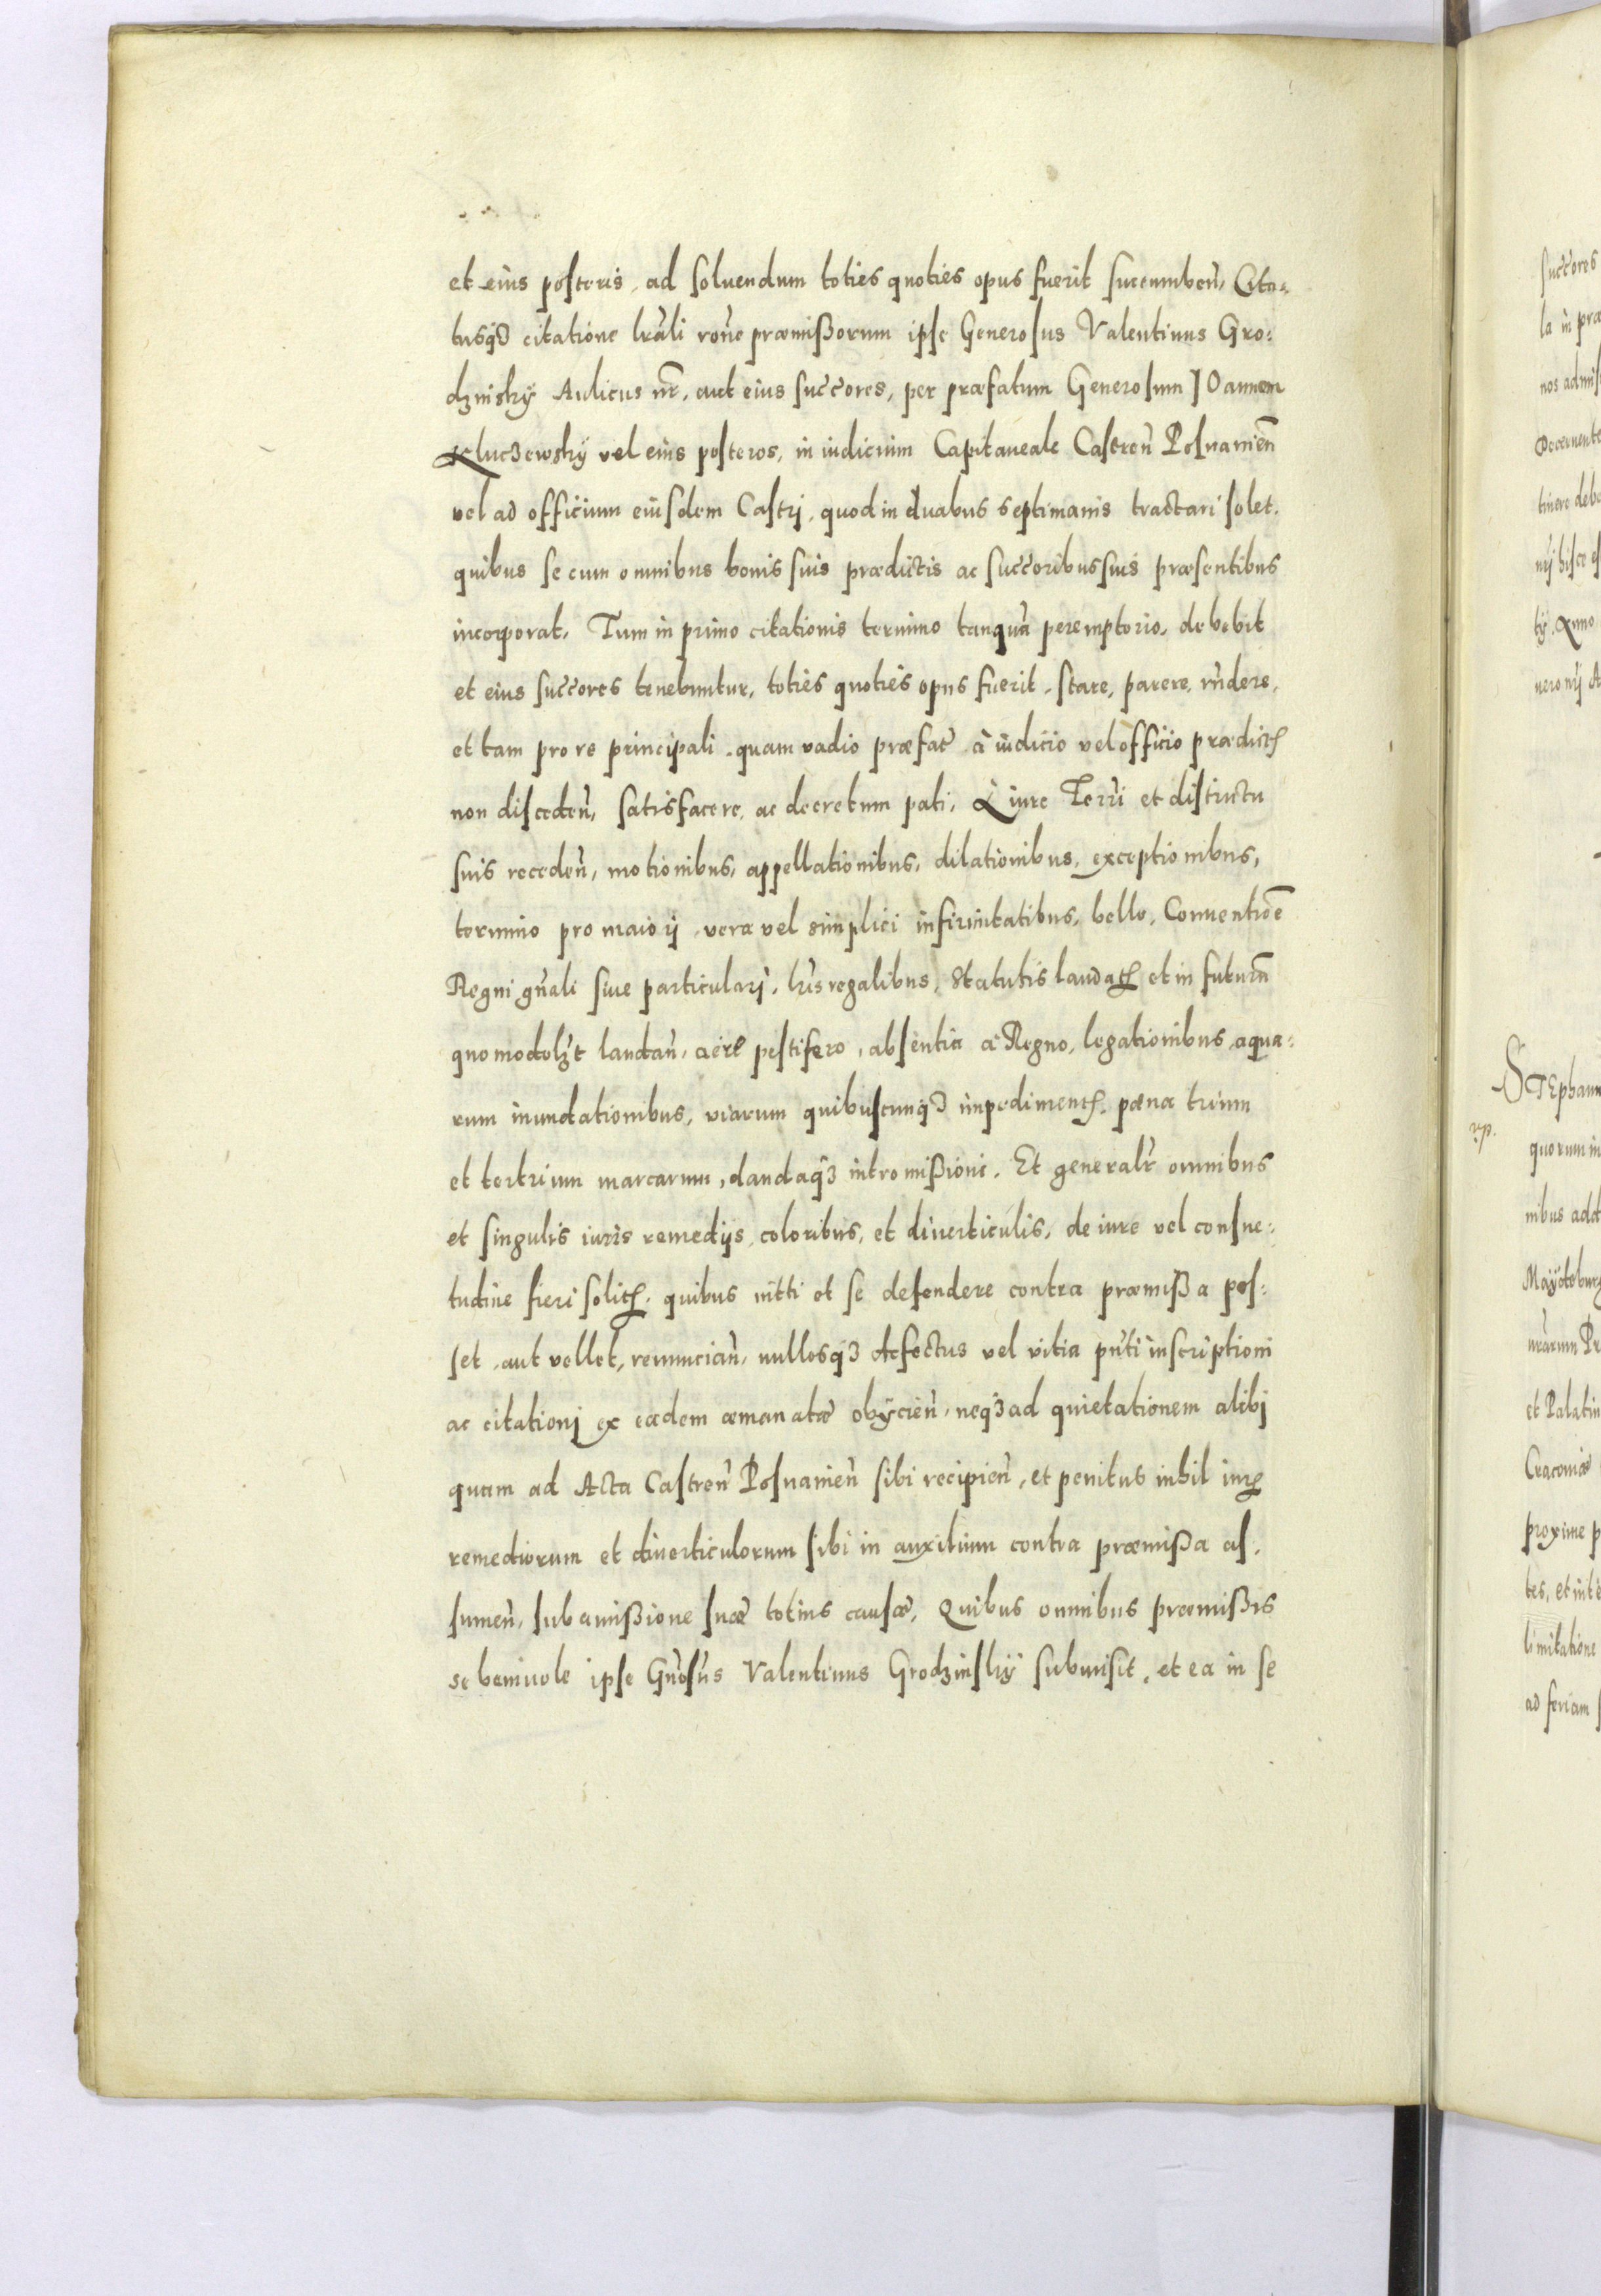 et eius posteris, ad soluendum toties quoties opus fuerit succumbeñ, Cita-
tusq3 citatione lrãli rõne præmissorum ipse Generosus Valentinus Gro:
dzinsky Aulicus nr̃, aut eius succ̃ores, per præfatum Generosum JOannem
Kluczewsky vel eius posteros, in iudicium Capitaneale Castreñ Posnanieñ
vel ad officium eiusdem Castrj, quod in duabus septimanis tractari solet.
quibus se cum omnibus bonis suis prædictis ac succ̃oribus suis præsentibus
incorporat. Tum in primo citationis termino tanquã peremptorio, debebit
et eius succ̃ores tenebuntur, toties quoties opus fuerit, stare, parere, rñdere,
et tam pro re principali, quam vadio præfat̃ à iudicio vel officio prædictꝭ
non discedeñ, satisfacere, ac decretum pati, à iure Terrj et districtu
suis recedeñ, motionibus, appellationibus, dilationibus, exceptionibus,
termino pro maiorj, vera vel simplici infirmitatibus, bello, Conuentiõe
Regni gñali siue particularj, lr̃is regalibus, Statutis laudatꝭ et in futurũ
quomodolz̃t laudañ, aëre pestifero, absentia à Regno, legationibus, aqua:
rum inundationibus, viarum quibuscunq3 impedimentꝭ, pæna trium
et tertrium marcarum, dandaq3 intromissioni. Et generalr̃ omnibus
et singulis iuris remedijs, coloribus, et diuerticulis, de iure vel consue:
tudine fieri solitꝭ, quibus nitti et se defendere contra præmissa pos:
set, aut vellet, renunciañ, nullosq3 defectus vel vitia pñti inscriptioni
ac citationj ex eadem æmanatæ obijcieñ, neq3 ad quietationem alibj
quam ad Acta Castreñ Posnanieñ sibi recipieñ, et penitus nihil iurꝭ
remediorum et diuerticulorum sibi in auxilium contra præmissa as,
sumeñ, sub amissione suæ totius causæ, Quibus omnibus præmissis
se beniuole ipse Gñosus Valentinus Grodzinsky submisit, et ea in se
succ̃ores
la in præ
nos admis
decernente
tinere deb
ty. Anno
STEphanu
rp.
quorum in
nibus add
Maydebur
et Palatin
Cracouiæ
proxime p
tes, et int
limitatione
ad feriam